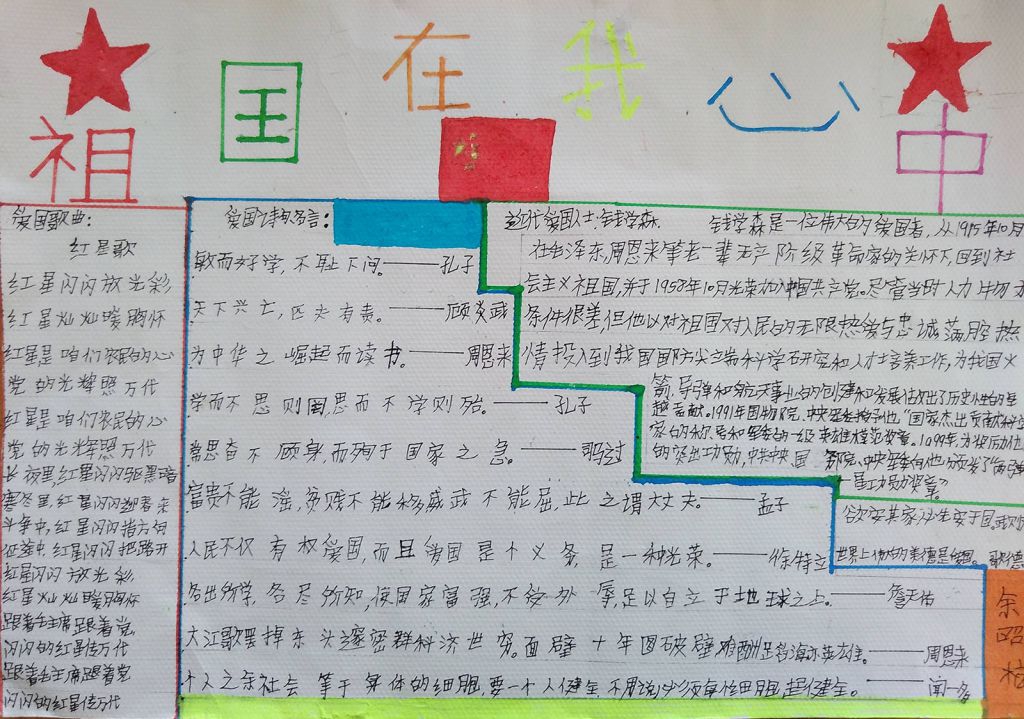 祖国在我心中
爱国歌曲:
红星歌
红星闪闪放光彩
红星灿灿暖胸怀
红星是咱们农民的心
党的光辉照万代
红星是咱们农民的心
党的光辉照万代
长夜里,红星闪闪驱黑暗
寒冬里,红星闪闪迎春来
斗争中,红星闪闪指方向
征途中,红星闪闪把路开
红星闪闪放光彩
红星灿灿暖胸怀
跟着毛主席跟着党
闪闪的红星传万代
跟着毛主席跟着党
闪闪的红星传万代
爱国诗句名言:
敏而好学,不耻下问。——孔子
天下兴亡,匹夫有责。——顾炎武
为中华之崛起而读书。——周恩来
学而不思则罔,思而不学则殆。——孔子
常思奋不顾身,而殉于国家之急。——司马迁
富贵不能淫,贫贱不能移,威武不能屈,此之谓大丈夫——孟子
人民不仅有权爱国,而且爱国是个义务,是一种光荣。——徐特立
各出所学,各尽所知,使国家富强,不受外辱,足以自立于地球之上。——詹天佑
大江歌罢掉东头,邃密群科济世穷。面壁十年图破壁,难酬蹈海亦英雄。——周恩来
个人之余社会等于身体的细胞,要一个人健全,不用说必须每个细胞超健全。——闻一多
近代爱国人士:钱学森
钱学森是一位伟大的爱国者,从1915年10月
在毛泽东,周恩来等老一辈无产阶级革命家的关怀下,回到社
会主义祖国,并于1958年10月光荣加入中国共产党。尽管当时人力物力
条件很差,但他以对祖国对人民的无限热爱与忠诚满腔热
情投入到我国国防尖端科学研究和人才培养工作,为我国火
箭,导弹和航天事业的创建和发展作出了历史性的卓
越贡献。1991年国务院,中央军委授予他,"国家杰出贡献科学
家的称号和军委的一级英雄模范奖章。1099年,为奖励他
的突出功勋,中共中央、国务院、中央军委向他颁发了"两弹
一星功勋奖章。"
欲安其家,必先安于国。武则
世界上伟大的美德是爱国。歌德
余
昭